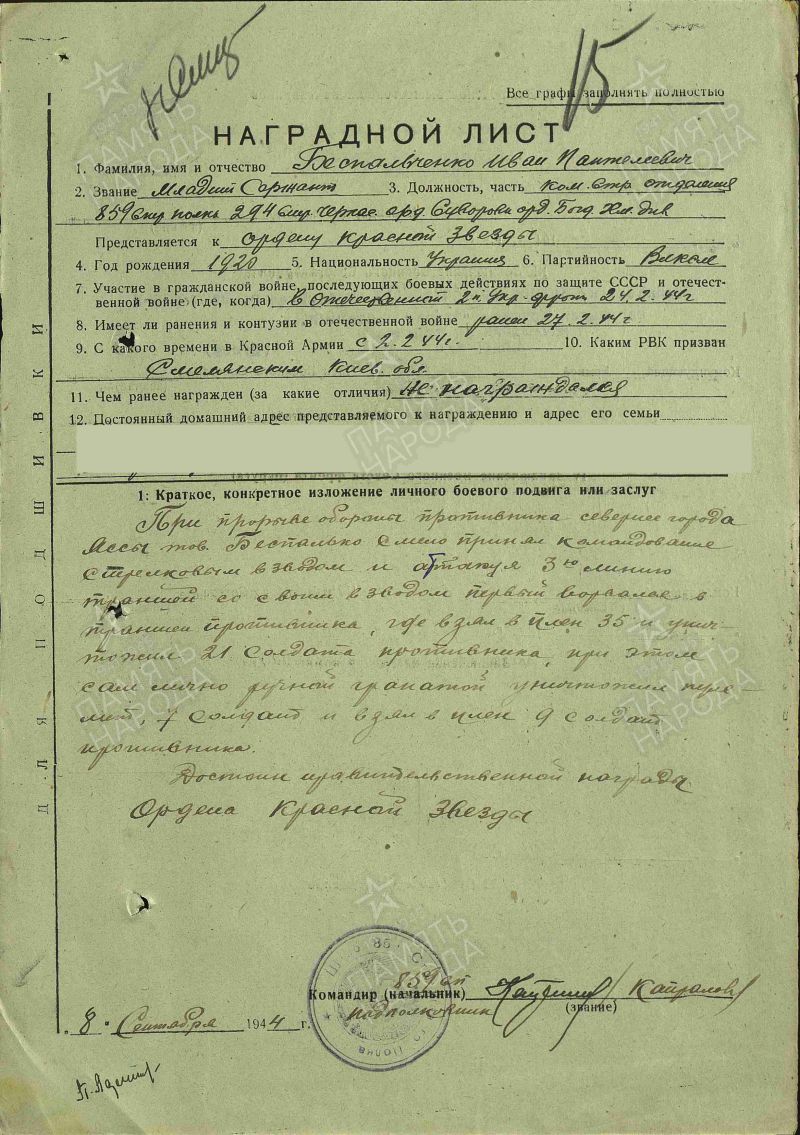 15
Все графы заполнять полностью
НАГРАДНОЙ ЛИСТ
1. Фамилия, имя и отчество Беспальченко Иван Пантелеевич
2. Звание Младший Сержант 3. Должность, часть ком. стр. отделения
859 стр полка 294 стр. Черкас. орд Суворова орд. Богд. Хм. див
Представляется к ордену Красной Звезды
4. Год рождения 1920 5. Национальность Украинец 6. Партийность
7. Участие в гражданской войне, последующих боевых действиях по защите СССР и отечест-
венной войне (где, когда) в Отечественной 2й Укр. фронт 24.2.44г
8. Имеет ли ранения и контузии в отечественной войне ранен 27.2.44г
9. С какого времени в Красной Армии с 2.2.44г. 10. Каким РВК призван
Смелянским Киев. обл.
11. Чем ранее награжден (за какие отличия) не награждался
12. Постоянный домашний адрес представляемого к награждению и адрес его семьи
1: Краткое, конкретное изложение личного боевого подвига или заслуг
При прорыве обороны противника севернее города
Яссы тов. Беспалько смело принял командование
стрелковым взводом и атакуя 3ю линию
траншей со своим взводом первый ворвался в
траншеи противника, где взял в плен 35 и унич-
тожил 21 солдата противника, при этом
сам лично ручной гранатой уничтожил пуле-
мет, 7 солдат и взял в плен 9 солдат
противника.
Достоин правительственной награды
Ордена Красной Звезды
859 сп
Командир (начальник) Кайралов
подполковник (звание)
"8" Сентября 1944 г.
ДЛЯ ПОДШИВКИ
ПАМЯТЬ НАРОДА